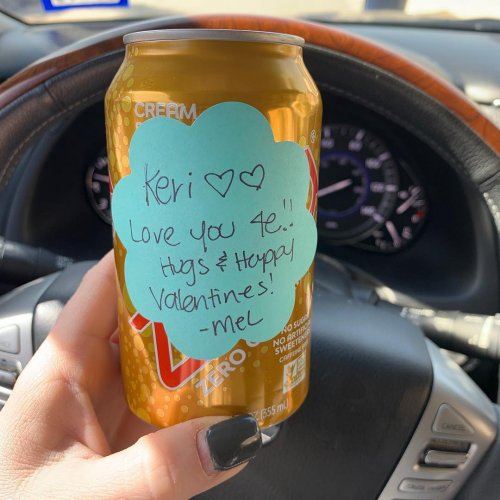 CREAM
Keri ♡♡
Love you 4e!!
Hugs & Happy
Valentines!
-Mel
ZERO
NO SUGAR
NO ARTIFICIAL
SWEETENE
CAFFEINE
(355 mL)
CANCEL